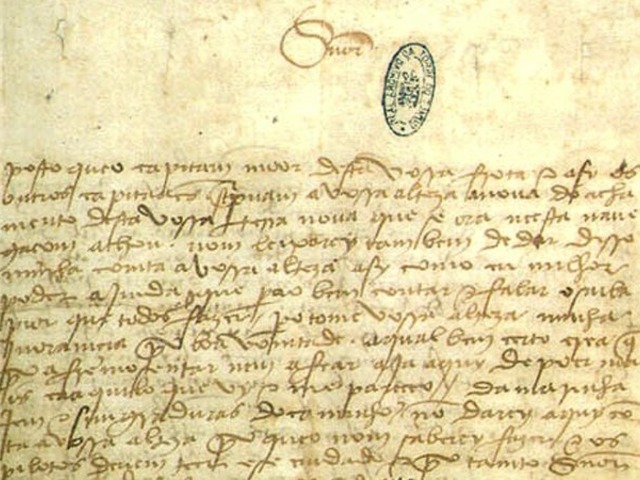 Snor
REAL ARCHIVO DA TORRE DO TOMBO
posto queo capitam moor desta vossa frota e asy os
outros capitaães screpuam a vossa alteza a noua do acha
mento desta vossa terra noua que se ora neesta naue
gaçom achou. nom leixarey tambem de dar disso
minha comta a vossa alteza asy como eu milhor
poder ajmda que pera o bem contar e falar o saiba
pior que todos fazer. pero tome vossa alteza minha
jnoramçia por boa vomtade. a qual bem certo crea q̃
por afremosentar nem afear aja aquy de poer ma
is ca aquilo que vy e me pareceo / da marinha
jem e simgraduras do caminho nõ darey aquy cõ
ta a vossa alteza por queo nom saberey fazer e os
pilotos deuem teer ese cuidado e por tanto Snor